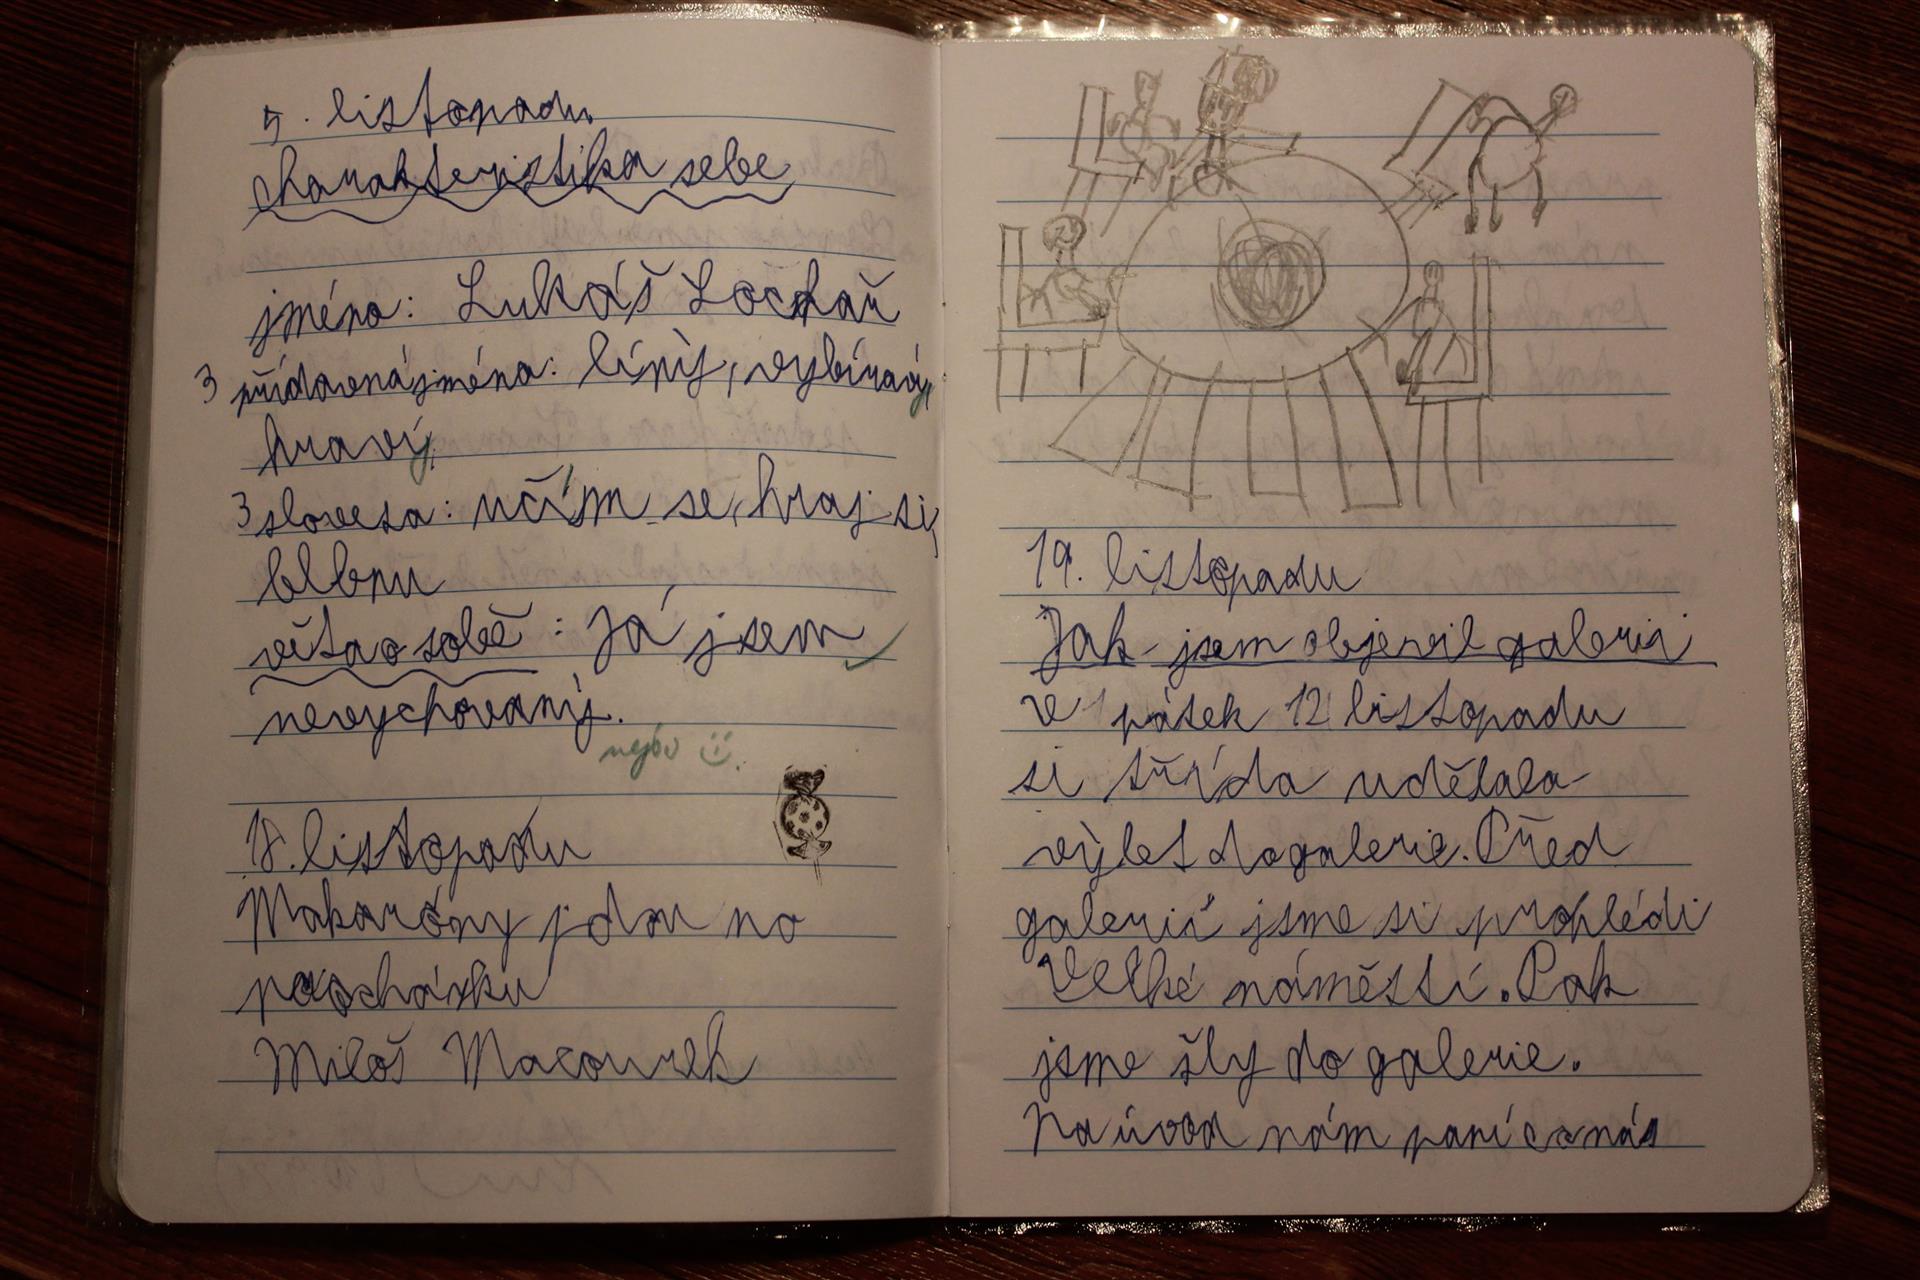 5. listopadu
charakteristika sebe
jméno: Lukáš Lochař
3 přídavná jména: líný, vybíravý,
hravý,
3 slovesa: učím se, hraj si,
blbnu
věta o sobě: Já jsem
nevychovaný.
18. listopadu
Makaróny jdou na
procházku
Miloš Macourek
19. listopadu
Jak jsem objevil galerii
v pátek 12 listopadu
si třída udělala
výlet do galerie. Před
galerií jsme si prohlédi
Velké náměstí. Pak
jsme šly do galerie.
Na úvod nám paní